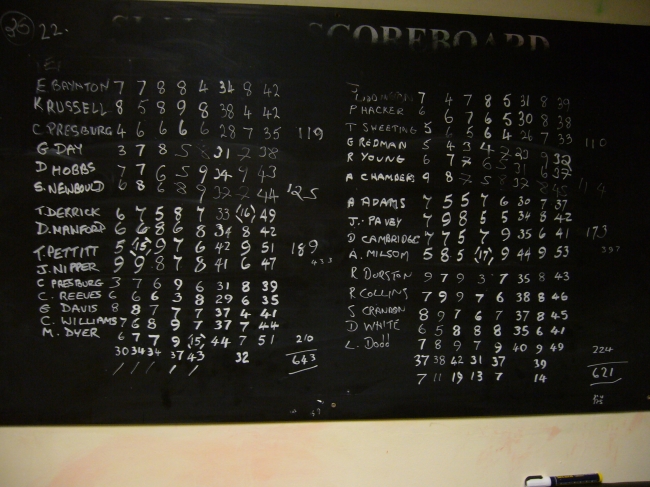 SCOREBOARD
22.
E BAYNTON 7 7 8 8 4 34 8 42
K RUSSELL 8 5 8 9 8 38 4 42
C PRESBURG 4 6 6 6 6 28 7 35 119
G DAY 3 7 8 5 8 31 7 38
D HOBBS 7 7 6 5 9 34 9 43
S. NEWBOULD 6 8 6 8 9 37 7 44 125
T. DERRICK 6 7 5 8 7 33 (16) 49
D. MANFORD 6 6 8 6 8 34 8 42
T. PETTITT 5 (15) 9 7 6 42 9 51 189
J. NIPPER 9 9 8 7 8 41 6 47 433
C PRESBURG 3 7 6 9 6 31 8 39
C. REEVES 6 6 6 3 8 29 6 35
G DAVIS 8 8 7 7 7 37 4 41
C. WILLIAMS 7 6 8 9 7 37 7 44
M. DYER 6 7 7 9 (15) 44 7 51 210
30 34 34 37 43 32 643
/ / / / /
7 4 7 8 5 31 8 39
P HACKER 6 6 7 6 5 30 8 38
T SWEETING 5 6 5 6 4 26 7 33 110
G REDMAN 5 4 3 4 7 23 9 32
R YOUNG 6 7 7 6 5 31 6 37
A CHAMBERS 9 8 7 5 8 37 8 45 114
A ADAMS 7 5 5 7 6 30 7 37
J. PAVEY 7 9 8 5 5 34 8 42
D CAMBRIDGE 7 7 5 7 9 35 6 41 173
A. MILSOM 5 8 5 (17) 9 44 9 53 397
R DURSTON 9 7 9 3 7 35 8 43
R COLLINS 7 9 9 7 6 38 8 46
S CRANDON 8 9 7 6 7 37 8 45
D WHITE 6 5 8 8 8 35 6 41
L. Dodd 7 8 9 7 9 40 9 49 224
37 38 42 31 37 39 621
7 11 19 13 7 14